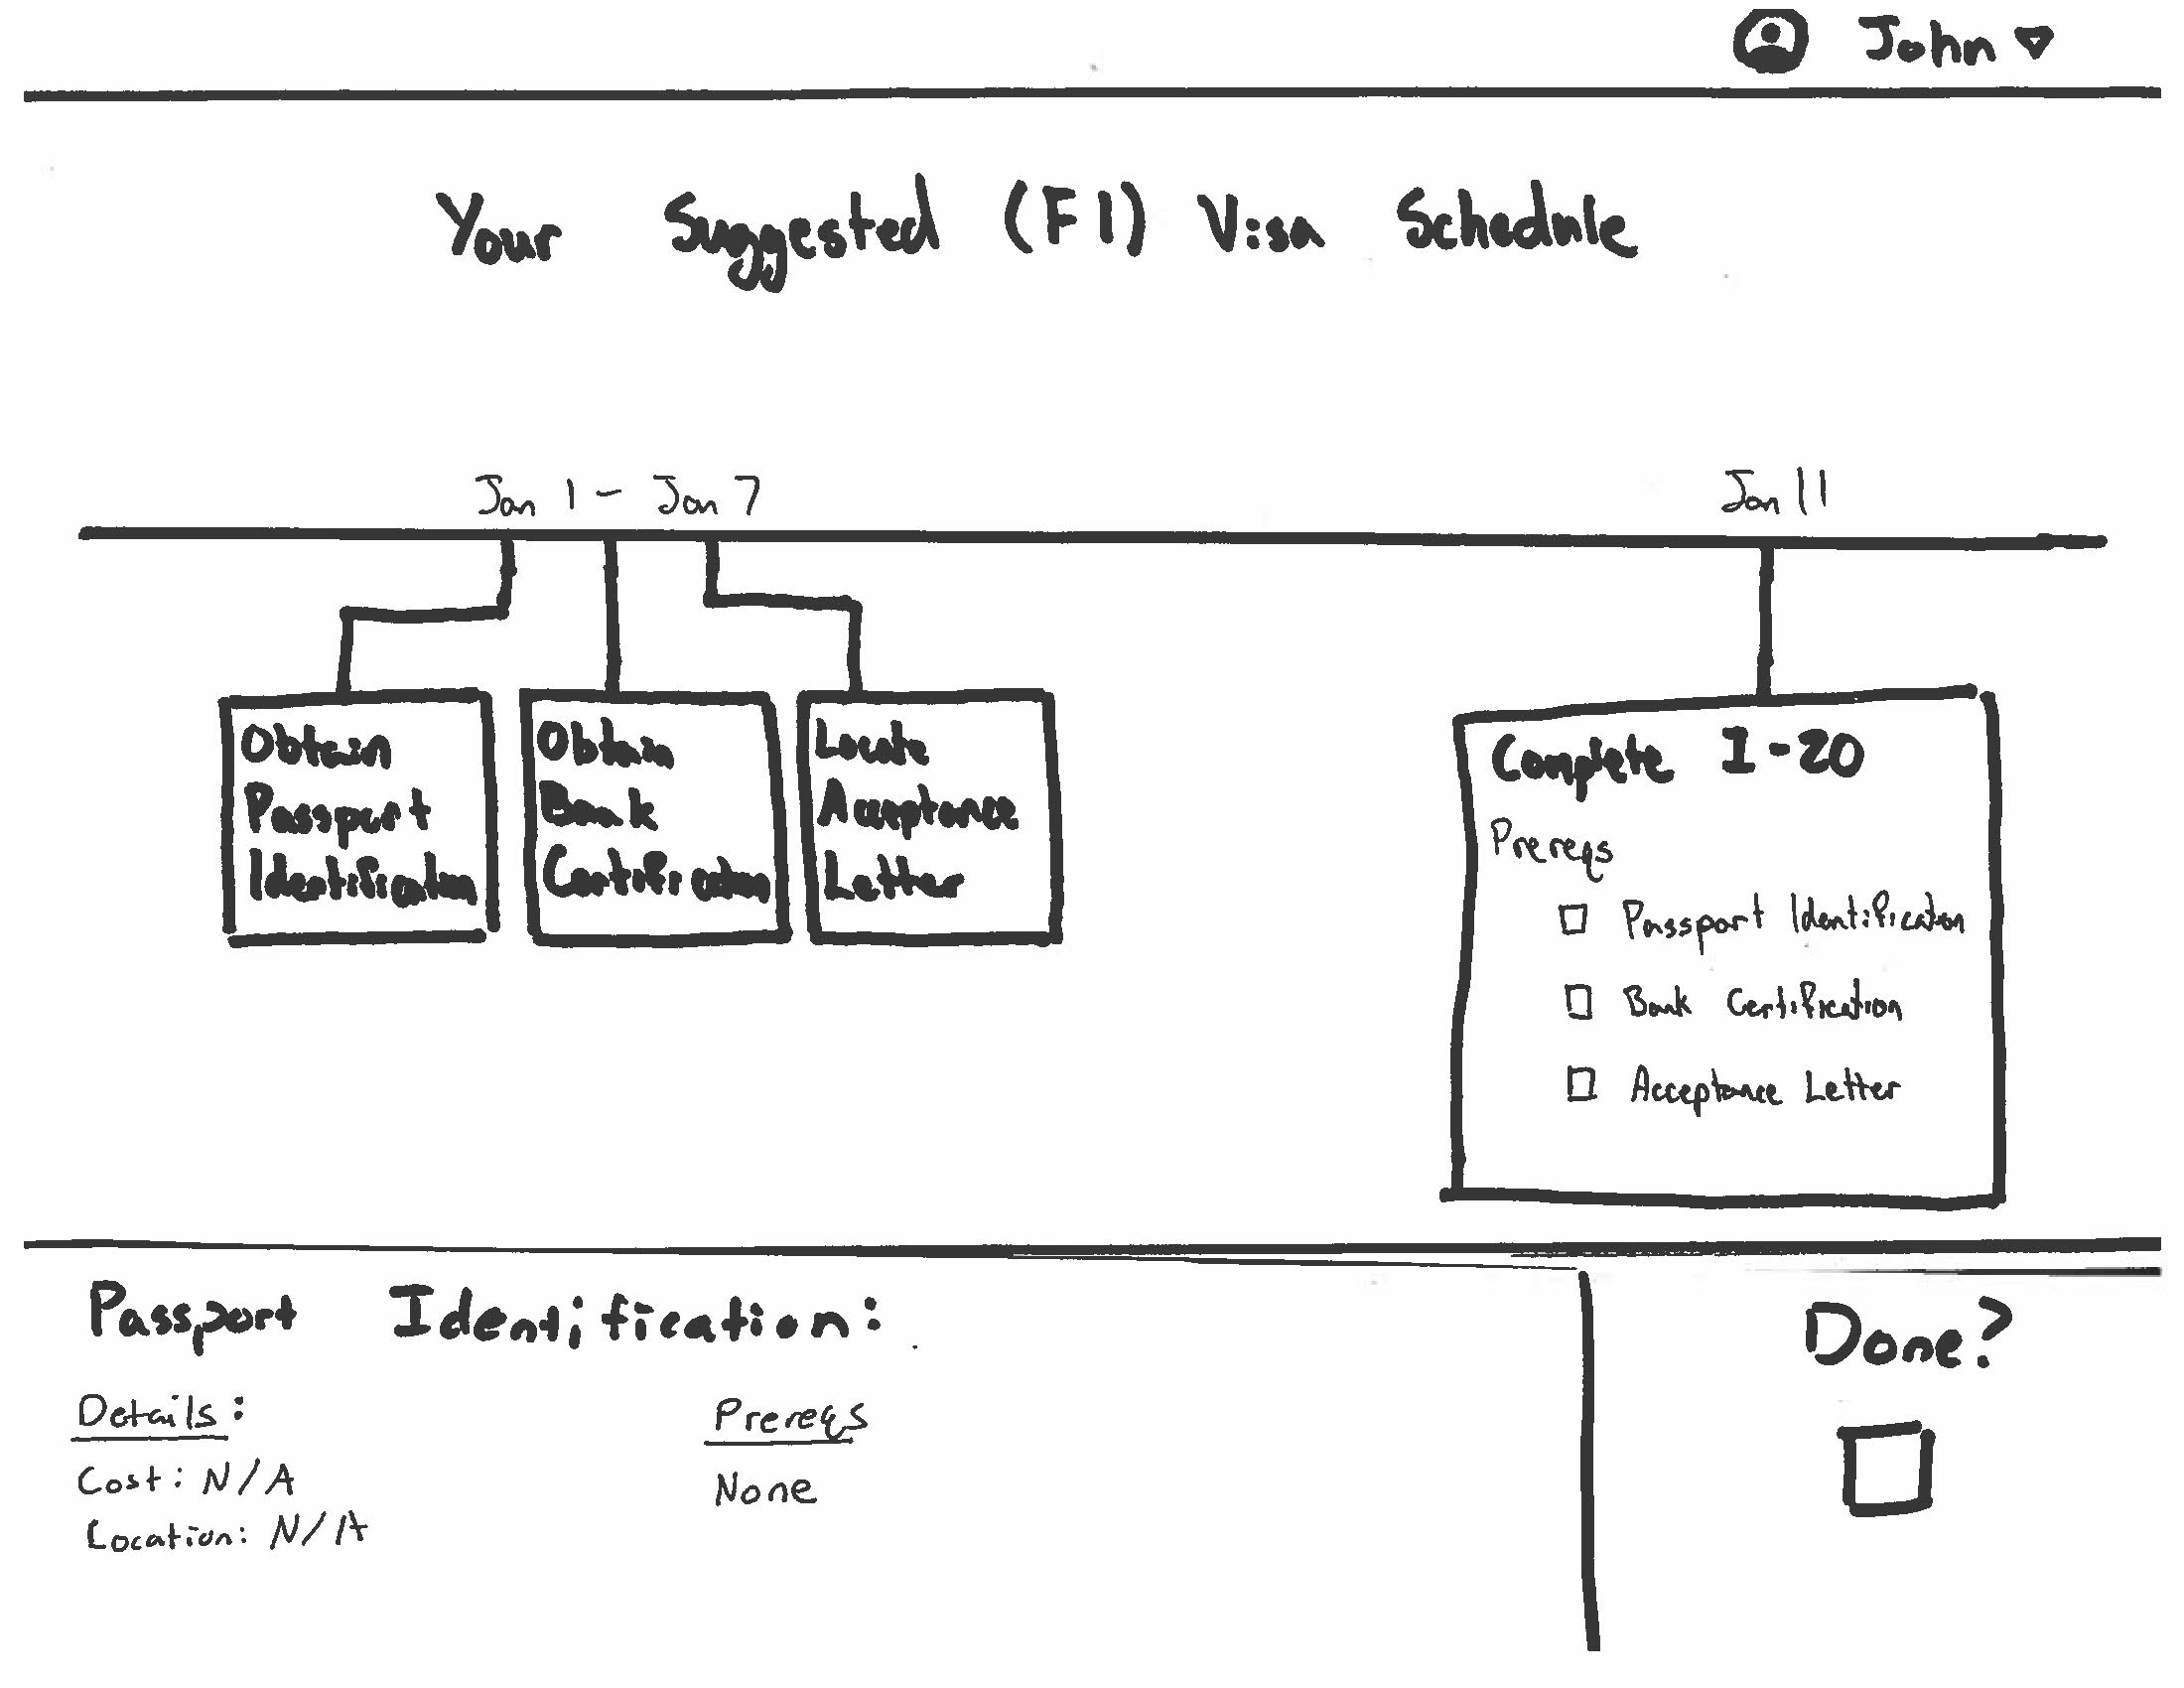 John
Your Suggested (F1) Visa Schedule
Jan 1 - Jan 7
Jan 11
Obtain
Passport
Identification
Obtain
Bank
Certification
Locate
Acceptance
Letter
Complete I-20
Prereqs
Passport Identification
Bank Certification
Acceptance Letter
Passport Identification:
Details:
Cost: N/A
Location: N/A
Prereqs
None
Done?